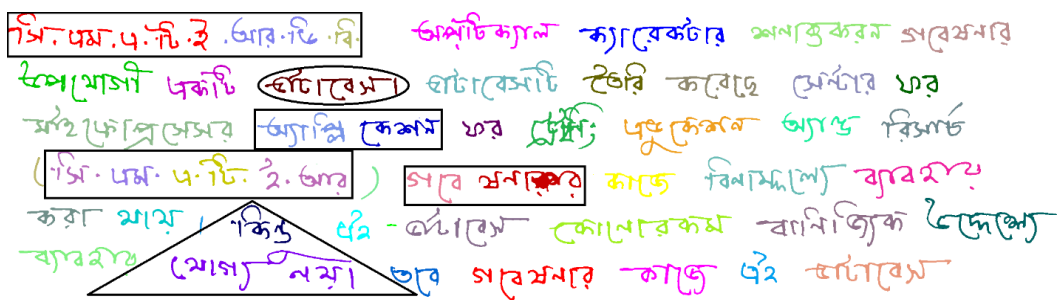 সি.এম.এ.টি.ই.আর.ডি.বি. অপটিক্যাল ক্যারেকটার শনাক্তকরন গবেষনার
উপযোগী একটি ডাটাবেস। ডাটাবেসটি তৈরি করেছে সেন্টার ফর
মাইক্রোপ্রসেসর অ্যাপ্লিকেশন ফর ট্রেনিং এডুকেশন অ্যান্ড রিসার্চ
(সি.এম.এ.টি.ই.আর) গবেষনার কাজে বিনামূল্যে ব্যাবহার
করা যায়। কিন্তু এই ডাটাবেস কোনোরকম বানিজ্যিক উদ্দেশ্যে
ব্যাবহার যোগ্য নয়। তবে গবেষনার কাজে এই ডাটাবেস